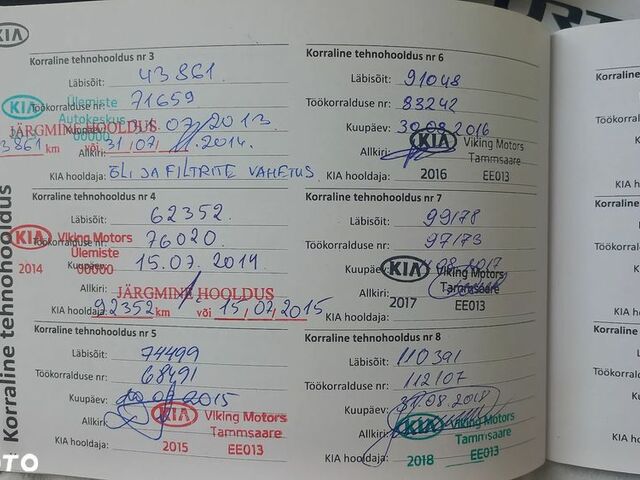 KIA
Korraline tehnohooldus
Korraline tehnohooldus nr 3
Läbisõit: 43861.
Töökorralduse nr: 71659
KIA Ülemiste Autokeskus
00000
Kuupäev: 07/2013
JÄRGMINE HOOLDUS
3861 km või 31.07.2014.
Allkiri:
KIA hooldaja: ÕLI JA FILTRITE VAHETUS
Korraline tehnohooldus nr 4
Läbisõit: 62352.
Töökorralduse nr: 76020
KIA Viking Motors
Ülemiste
2014 00000
Kuupäev: 15.07.2014.
Allkiri:
JÄRGMINE HOOLDUS
KIA hooldaja: 92352 km või 15.07.2015
Korraline tehnohooldus nr 5
Läbisõit: 74499
Töökorralduse nr: 68491
Kuupäev: 2015
Allkiri:
KIA Viking Motors
Tammsaare
KIA hooldaja: 2015 EE013
Korraline tehnohooldus nr 6
Läbisõit: 91048
Töökorralduse nr: 83242
Kuupäev: 2016
Allkiri:
KIA Viking Motors
Tammsaare
KIA hooldaja: 2016 EE013
Korraline tehnohooldus nr 7
Läbisõit: 99178
Töökorralduse nr: 97173
Kuupäev: 08.2017
KIA Viking Motors
Allkiri: Tammsaare
KIA hooldaja: 2017 EE013
Korraline tehnohooldus nr 8
Läbisõit: 110391
Töökorralduse nr: 112107
Kuupäev: 31.08.2018
Allkiri:
KIA Viking Motors
Tammsaare
KIA hooldaja: 2018 EE013
Korraline
Töökorraldu
Kuu
KIA ho
Korraline
Töökorrald
Ku
KIA h
Korraline
Töökorral
K
KIA